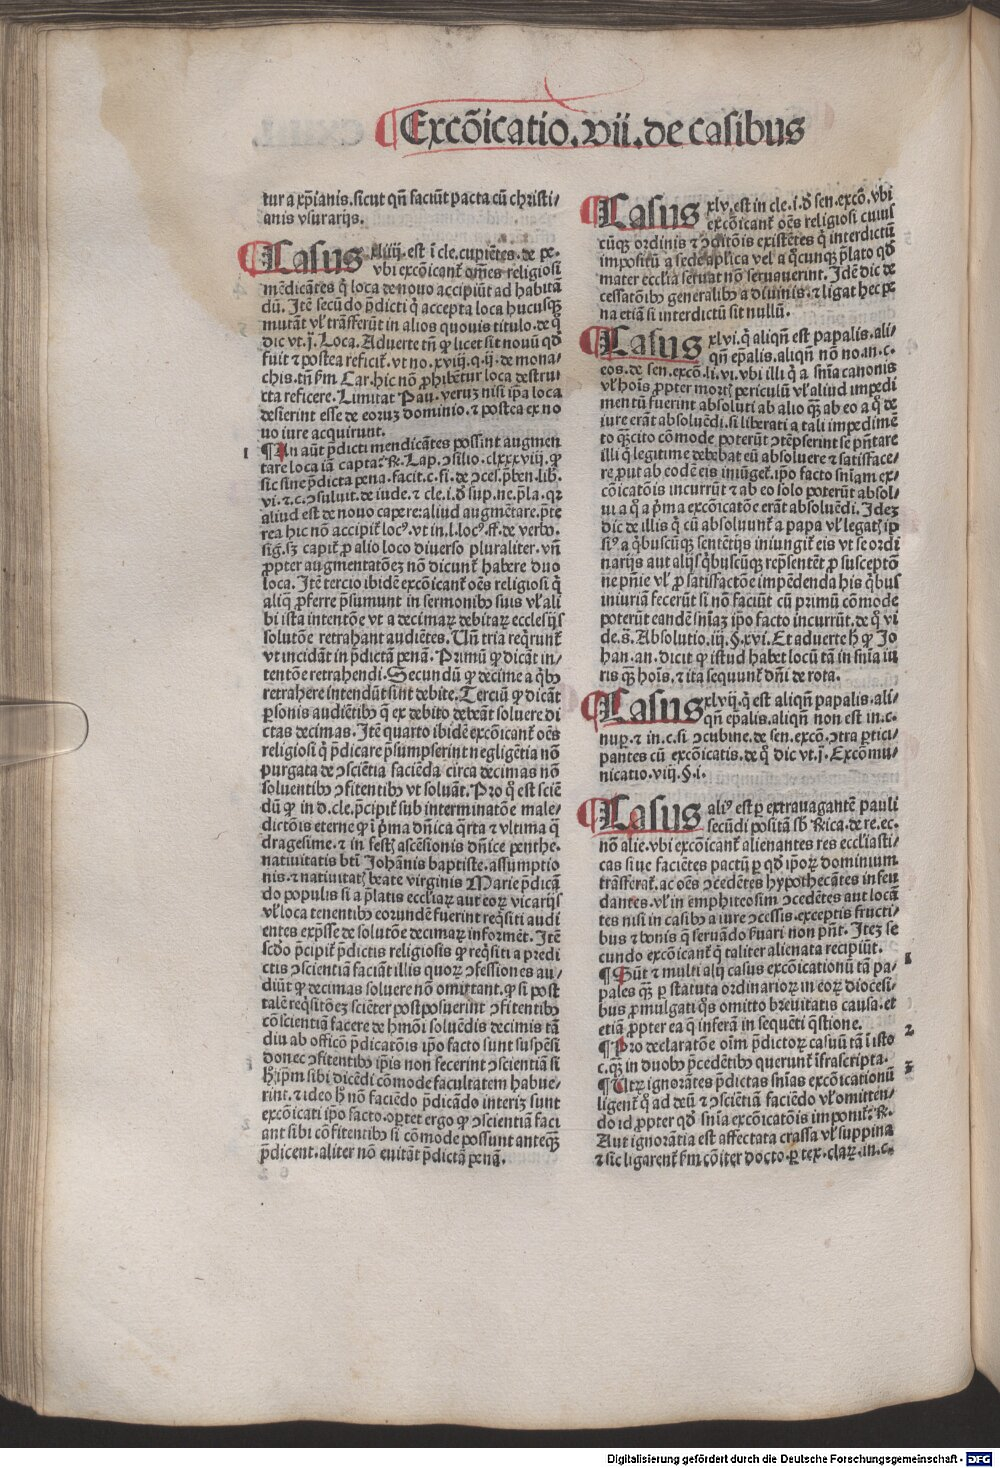 Excōicatio.vii.de casibus
tur a xp̄ianis.sicut qn̄ faciūt pacta cū christi-
anis vsurarijs.
Casus .xliiij. est ī cle.cupiētes.de pe.
vbi excōicant᷑ om̄es religiosi
mēdicātes q̇ loca de nouo accipiūt ad habitā
dū. Itē secūdo p̄dicti q̇ accepta loca hucusqꝫ
mutāt vl̓ trāsferūt in alios quouis titulo.de q̊
dic vt.j. Loca. Aduerte tn̄ ꝙ licet sit nouū qd̓
fuit ⁊ postea reficit᷑.vt no.xviij.q.ij.de mona-
chis.tn̄ ẜm Car.hic nō ꝓhibētur loca destru-
cta reficere. Limitat Pau. veruꝫ nisi ip̄a loca
desierint esse de eoruꝫ dominio.⁊ postea ex no
uo iure acquirunt.
1 ¶ An aūt p̄dicti mendicātes possint augmen
tare loca iā capta? ꝶ. Lap. ꝯsilio.clxxxviij. ꝙ
sic sine p̄dicta pena.facit.c.fi.de ꝯces.p̄ben.lib.
vi.⁊.c.ꝯsuluit.de iude.⁊ cle.i.d̓ sup.ne.p̄la.qꝛ
aliud est de nouo capere:aliud augmētare.p̄te
rea hic nō accipit᷑ locꝰ.vt in.l.locꝰ.ff.de verbo.
sig.sꝫ capit᷑ ꝓ alio loco diuerso pluraliter.vn̄
ꝓpter augmentatōeꝫ nō dicunt᷑ habere duo
loca. Itē tercio ibidē excōicant᷑ oēs religiosi q̇
aliq̇ ꝓferre p̄sumunt in sermonibꝫ suis vl̓ ali
bi ista intentōe vt a decimaꝝ debitaꝝ ecclesijs
solutōe retrahant audiētes. Un̄ tria reqͥrunt᷑
vt incidāt in p̄dictā penā. Primū ꝙ dicāt in/
tentōe retrahendi. Secundū ꝙ decime a qͥbꝫ
retrahere intendūt sint debite. Terciū ꝙ dicāt
ꝑsonis audiētibꝫ que ex debito debeāt soluere di
ctas decimas. Itē quarto ibidē excōicant᷑ oēs
religiosi q̇ p̄dicare p̄sumpserint negligētia nō
purgata de ꝯsciētia faciēda circa decimas nō
soluentibꝫ ꝯfitentibꝫ vt soluāt. Pro q̊ est sciē
dū ꝙ in d.cle.p̄cipit᷑ sub interminatōe male/
dictōis eterne ꝙ ī p̄ma dn̄ica qͣrta ⁊ vltima q̄
dragesime.⁊ in festꝭ ascēsionis dn̄ice penthe.
natiuitatis bt̄i Iohānis baptiste.assumptio
nis.⁊ natiuitatꝭ beate virginis Marie p̄dicā
do populis si a p̄latis eccl̓iaꝝ aut eoꝝ vicarijs
vl̓ loca tenentibꝫ eorundē fuerint reqͥsiti audi
entes exp̄sse de solutōe decimaꝝ informēt. Itē
scd̓o p̄cipit᷑ p̄dictis religiosis ꝙ reqͥsiti a predi
ctis ꝯscientiā faciāt illis quoꝝ ꝯfessiones au/
diūt ꝙ decimas soluere non omittant.ꝙ si post
talē reqͥsitōeꝫ sciēter postposuerint ꝯfitentibꝫ
cōscientiā facere de hmōi soluēdis decimis tā
diu ab officō p̄dicatōis ip̄o facto sunt suspēsi
donec ꝯfitentibꝫ ip̄is non fecerint ꝯscientiā si
hͦ ip̄m sibi dicēdi cōmode facultatem habue/
rint.⁊ ideo hͦ nō faciēdo p̄dicādo interiꝫ sunt
excōicati ip̄o facto.oportet ergo ꝙ ꝯscientiā faci
ant sibi cōfitentibꝫ si cōmode possunt anteqꝫ
p̄dicent.aliter nō euitāt p̄dictā penā.
Casus xlv.est in cle.i.d̓ sen.excō.vbi
excōicant᷑ oēs religiosi cuius
cūqꝫ ordinis ⁊ ꝯditōis existētes q̇ interdictū
impositū a sede apl̓ica vel a qͦcunqꝫ p̄lato qd̓
mater eccl̓ia seruat nō seruauerint. Idē dic de
cessatōibꝫ generalibꝫ a diuinis.⁊ ligat hec pe
na etiā si interdictū sit nullū.
Casus xlvi.q̇ aliqn̄ est papalis.ali/
qn̄ ep̄alis.aliqn̄ nō no.in.c.
eos.de sen.excō.li.vi.vbi illi q̇ a sn̄ia canonis
vl̓ hoīs ꝓpter mortꝭ periculū vl̓ aliud impedi
mentū fuerint absoluti ab alio qꝫ ab eo a q̊ de
iure erāt absoluēdi.si liberati a tali impedimē
to qꝫcito cōmode poterūt ꝯtēpserint se p̄ntare
illi q̇ legitime debebat eū absoluere ⁊ satisface-
re ꝓut ab codē eis iniūget᷑.ip̄o facto sn̄iam ex-
cōicatōis incurrūt ⁊ ab eo solo poterūt absol-
ui a q̊ a p̄ma excōicatōe erāt absoluēdi. Ideꝫ
dic de illis q̇ cū absoluunt᷑ a papa vl̓ legatꝭ ip
siꝰ a qͥbuscūqꝫ sentētijs iniungit᷑ eis vt se ordi
narijs aut alijs qͥbuscūqꝫ rep̄sentēt ꝓ susceptōe
ne pn̄ie vl̓ ꝓ satisfactōe impēdenda his qͥbus
iniuriā fecerūt si nō faciūt cū primū cōmode
poterūt eandē sn̄iaꝫ ip̄o facto incurrūt.de q̊ vi
de.s̄. Absolutio.iij.§.xvi. Et aduerte hͦ ꝙ Jo
han.an.dicit ꝙ istud habet locū tā in sn̄ia iu
ris qꝫ hoīs.⁊ ita sequunt᷑ dn̄i de rota.
Casus xlvij.q̇ est aliqn̄ papalis.ali/
qn̄ ep̄alis.aliqn̄ non est in.c.
nuꝑ.⁊ in.c.si ꝯcubine.de sen.excō.ꝯtra ꝑtici/
pantes cū excōicatis.de q̊ dic vt.j. Excōmu/
nicatio.viij.§.i.
Casus aliꝰ est ꝑ extrauagantē pauli
secūdi positā sb̓ Rꝛica.de re.ec.
nō alie.vbi excōicant᷑ alienantes res eccl̓iasti/
cas siue faciētes pactū ꝑ qd̓ ip̄oꝝ dominium
trāsferat᷑.ac oēs ꝯcedētes hypothecātes infeu
dantes.vl̓ in emphiteosim ꝯcedētes aut locā
tes nisi in casibꝫ a iure ꝯcessis.exceptis fructi/
bus ⁊ bonis q̄ seruādo ẜuari non pn̄t. Iteꝫ se
cundo excōicant᷑ q̇ taliter alienata recipiūt.
1 ¶ Sūt ⁊ multi alij casus excōicationū tā pa/
pales qꝫ ꝑ statuta ordinarioꝝ in eoꝝ diocesi-
bus ꝓmulgati qͦs omitto breuitatis causa.et
etiā ꝓpter ea q̄ inferā in sequēti qͣstione.
2 ¶ Pro declaratōe oīm p̄dictoꝝ casuū tā ī isto
c.qꝫ in duobꝫ p̄cedētibꝫ querunt᷑ īfrascripta.
3 ¶ Utꝝ ignorātes p̄dictas sn̄ias excōicationū
ligent᷑ q̇ ad deū ⁊ ꝯsciētiā faciēdo vl̓ omitten/
do id ꝓpter qd̓ sn̄ia excōicatōis imponit᷑. ꝶ.
Aut ignorātia est affectata crassa vl̓ suppina
⁊ sic ligarent᷑ ẜm cōiter docto.ꝑ tex.claꝝ.in.c.
Digitalisierung gefördert durch die Deutsche Forschungsgemeinschaft - DFG